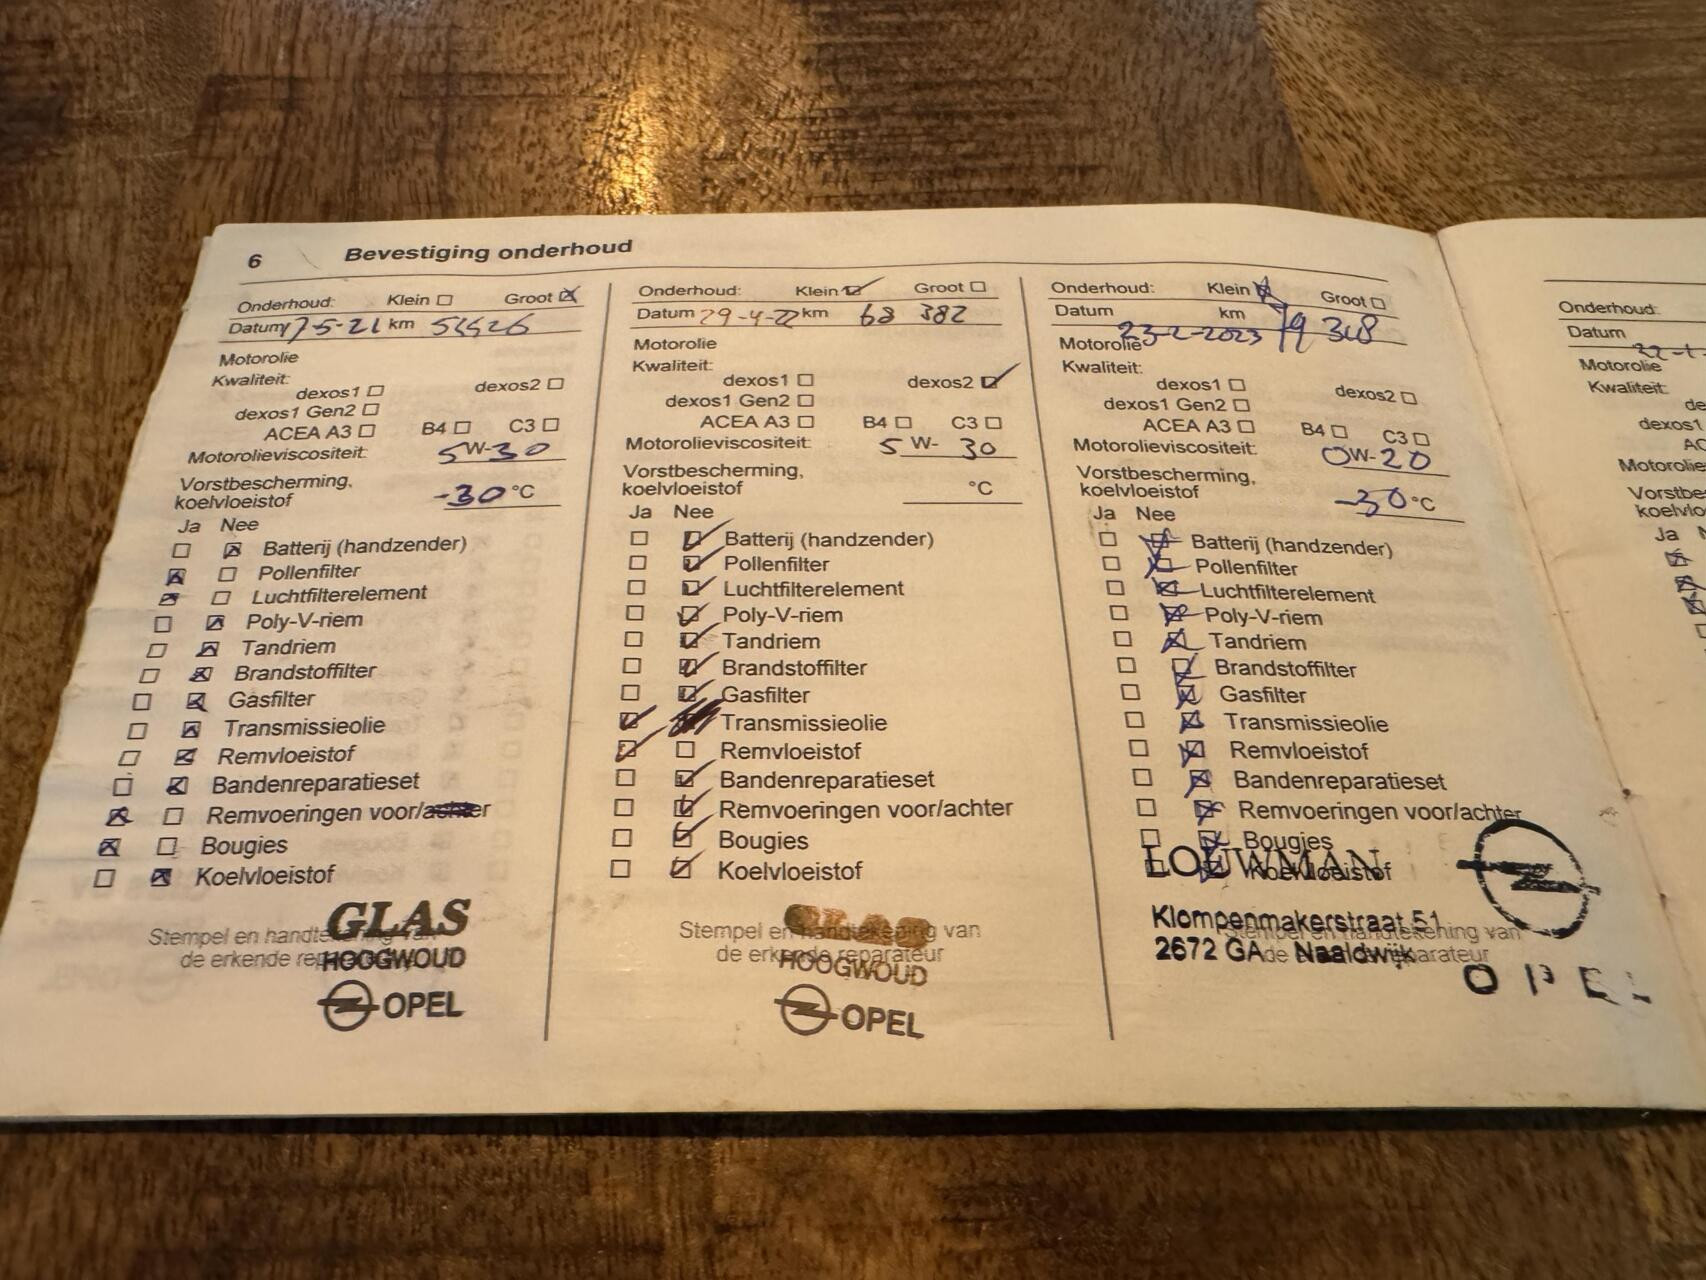 6 Bevestiging onderhoud
Onderhoud: Klein Groot
Datum 17-5-21 km
Motorolie
Kwaliteit:
dexos1 dexos2
dexos1 Gen2
ACEA A3 B4 C3
Motorolieviscositeit: 5 W-30
Vorstbescherming,
koelvloeistof -30 °C
Ja Nee
Batterij (handzender)
Pollenfilter
Luchtfilterelement
Poly-V-riem
Tandriem
Brandstoffilter
Gasfilter
Transmissieolie
Remvloeistof
Bandenreparatieset
Remvoeringen voor/achter
Bougies
Koelvloeistof
Stempel en handtekening van
de erkende reparateur
GLAS
HOOGWOUD
OPEL
Onderhoud: Klein Groot
Datum 29-4-22 km 68 382
Motorolie
Kwaliteit:
dexos1 dexos2
dexos1 Gen2
ACEA A3 B4 C3
Motorolieviscositeit: 5 W- 30
Vorstbescherming,
koelvloeistof °C
Ja Nee
Batterij (handzender)
Pollenfilter
Luchtfilterelement
Poly-V-riem
Tandriem
Brandstoffilter
Gasfilter
Transmissieolie
Remvloeistof
Bandenreparatieset
Remvoeringen voor/achter
Bougies
Koelvloeistof
Stempel en handtekening van
de erkende reparateur
GLAS
HOOGWOUD
OPEL
Onderhoud: Klein Groot
Datum 23-2-2023 km 79 348
Motorolie
Kwaliteit:
dexos1 dexos2
dexos1 Gen2
ACEA A3 B4 C3
Motorolieviscositeit: 0W-20
Vorstbescherming,
koelvloeistof -30 °C
Ja Nee
Batterij (handzender)
Pollenfilter
Luchtfilterelement
Poly-V-riem
Tandriem
Brandstoffilter
Gasfilter
Transmissieolie
Remvloeistof
Bandenreparatieset
Remvoeringen voor/achter
Bougies
Koelvloeistof
Stempel en handtekening van
de erkende reparateur
LOUWMAN
Klompenmakerstraat 51
2672 GA Naaldwijk
OPEL
Onderhoud:
Datum
Motorolie
Kwaliteit:
de
dexos1
AC
Motorolie
Vorstbe
koelvlo
Ja N